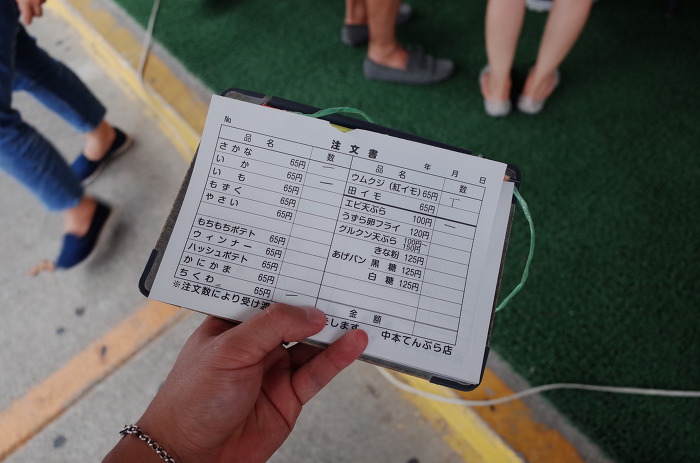 №
注文書
年 月 日
品名 数
さかな 65円
いか 65円 一
いも 65円 一
もずく 65円
やさい 65円
もちもちポテト 65円
ウィンナー 65円
ハッシュポテト 65円
かにかま 65円
ちくわ 65円 一
品名 数
ウムクジ(紅イモ) 65円
田イモ 65円
エビ天ぷら 100円
うずら卵フライ 120円
グルクン天ぷら 100円 150円
きな粉 125円
あげパン 黒糖 125円
白糖 125円
金額
※注文数により受け渡 します 中本てんぷら店